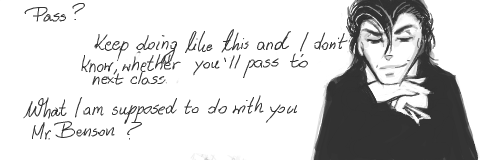 Pass?
Keep doing like this and I don't
know, whether you'll pass to
next class.
What I am supposed to do with you
Mr. Benson?